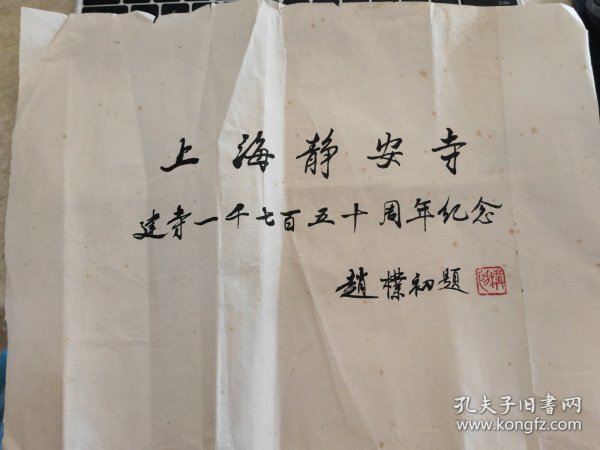 上海静安寺
建寺一千七百五十周年纪念
趙樸初題
樸初
孔夫子旧書网
www.kongfz.com